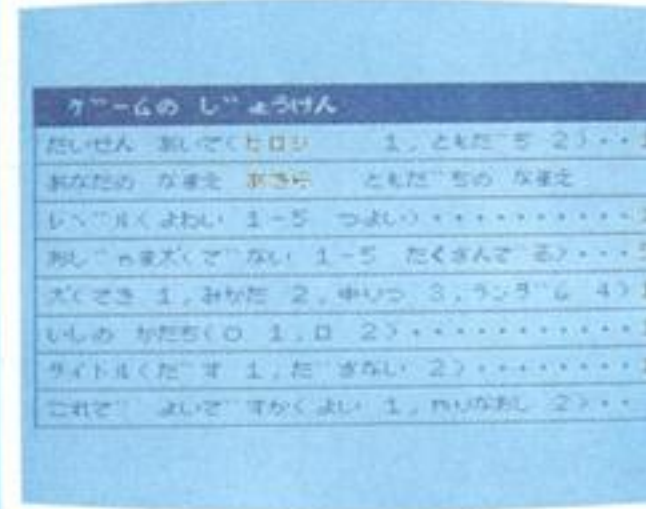 ケ゛ームの し゛ょうけん
たいせん あいて(ヒロシ 1,ともた゛ち 2)・・
あなたの なまえ あきら ともた゛ちの なまえ
レヘ゛ル(よわい 1-5 つよい)・・・・・・・・・・
おし゛ゃま (て゛ない 1-5 たくさんて゛る)・・・
(てき 1,みかた 2,中りつ 3,ランタ゛ム 4)
いしの かたち(○ 1,□ 2)・・・・・・・・・・・・
タイトル(た゛す 1,た゛さない 2)・・・・・・・・
これて゛ よいて゛すか(よい 1,やりなおし 2)・・